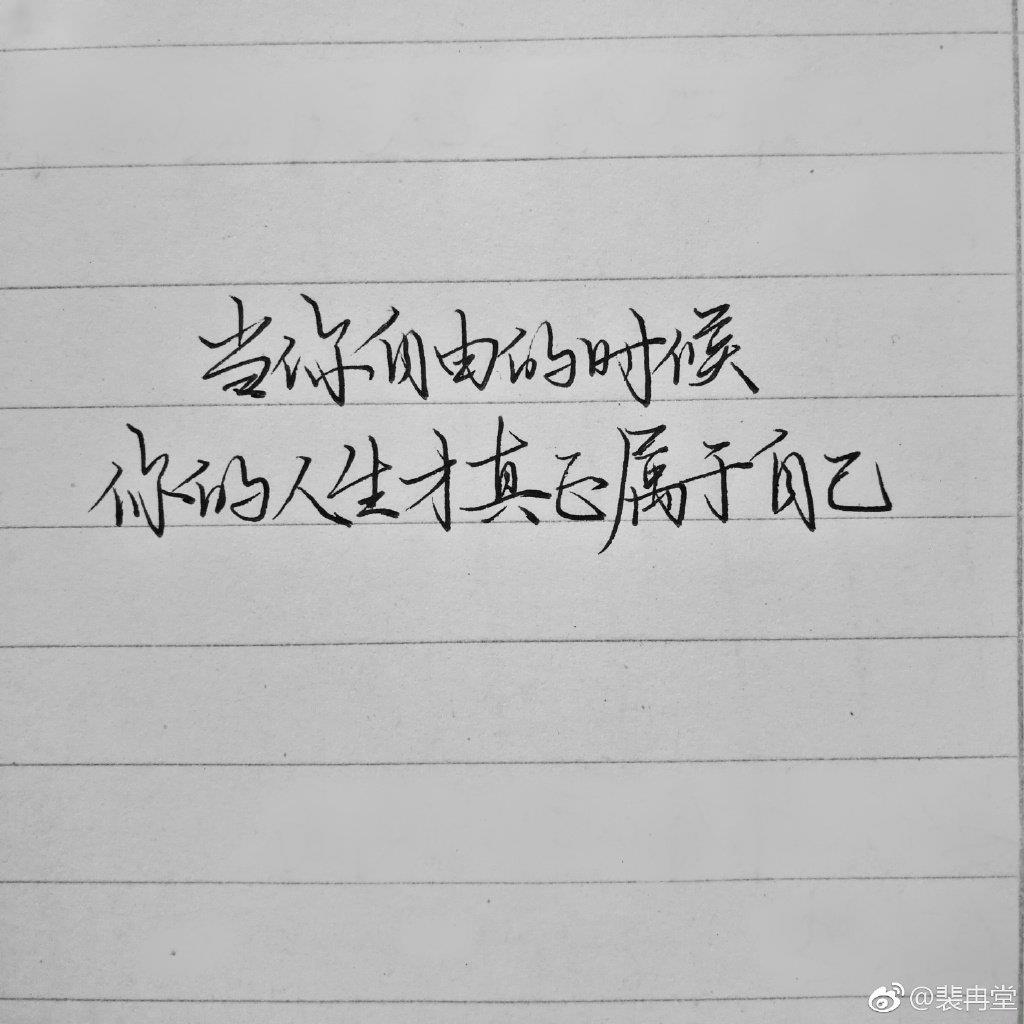 当你自由的时候
你的人生才真正属于自己
@裴冉堂